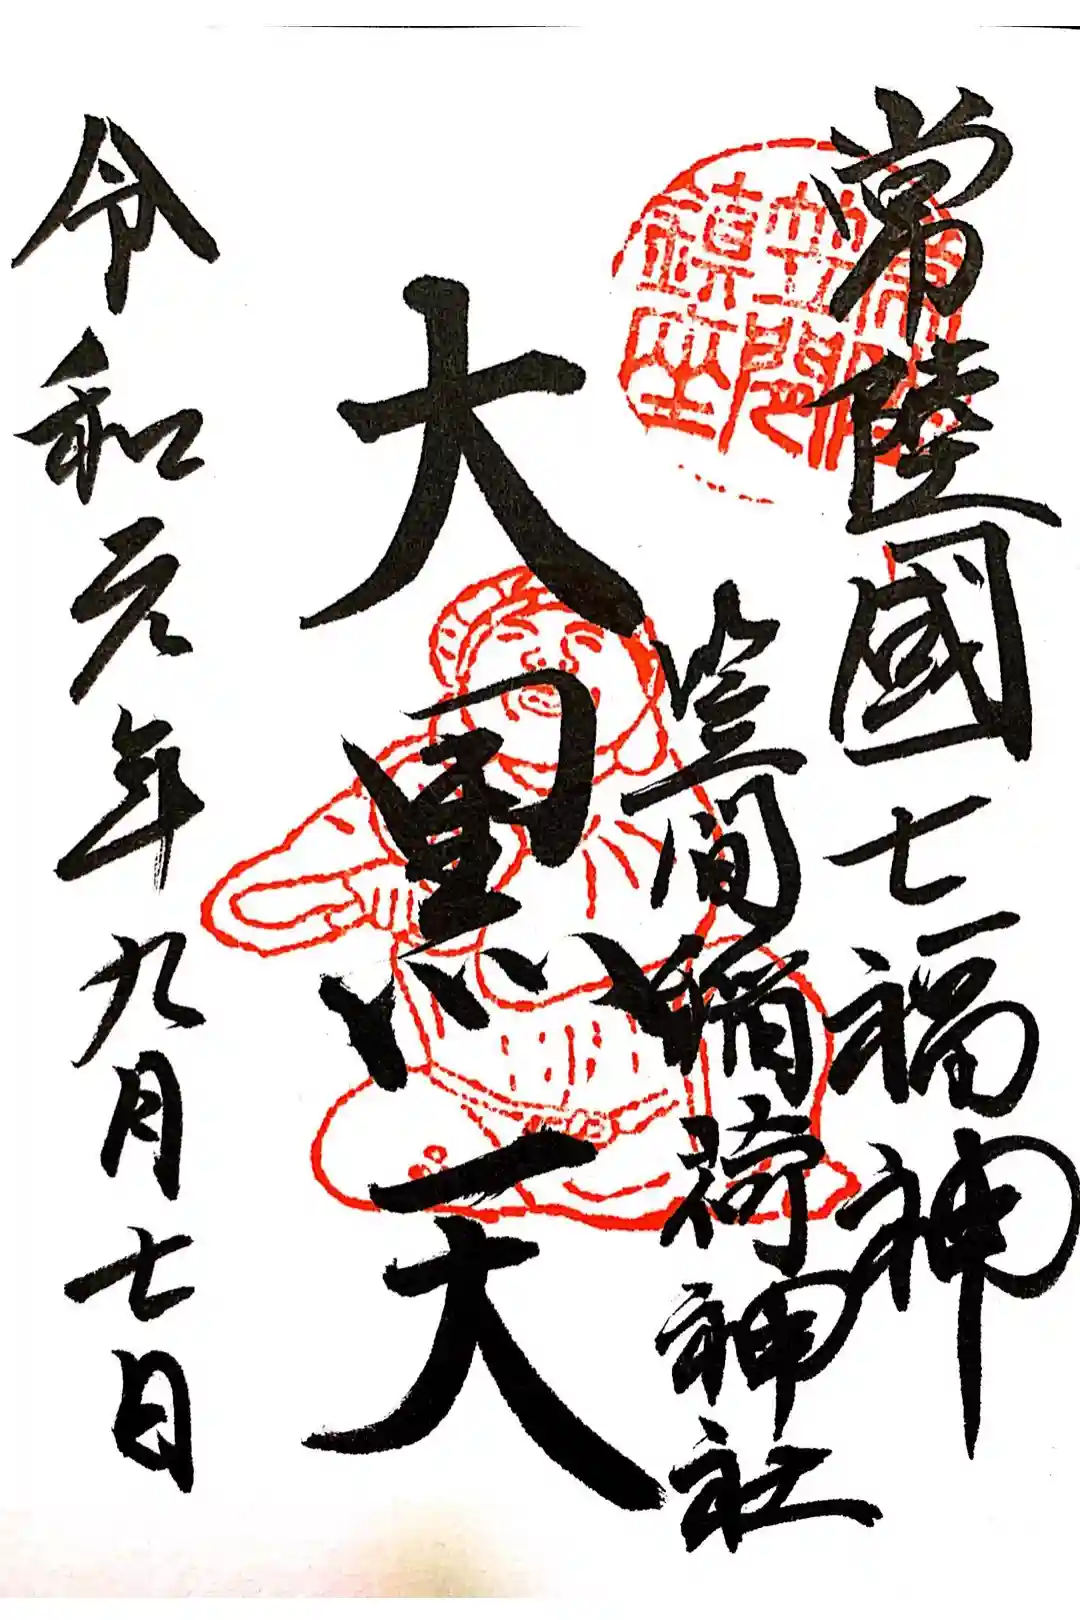 常陸國七福神
笠間稲荷神社
大黒天
令和元年九月七日
鎮座